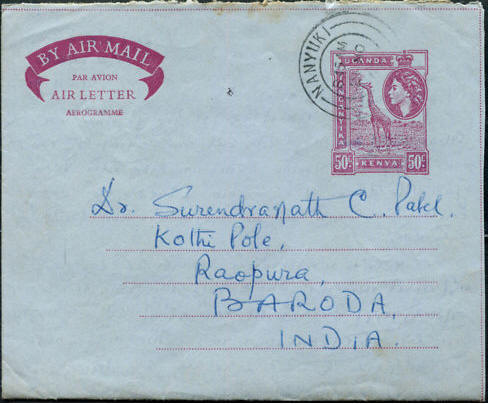 BY AIR MAIL
PAR AVION
AIR LETTER
AEROGRAMME
NANYUKI
UGANDA
TANGANYIKA
50c
KENYA
50c
Dr. Surendranath C. Patel.
Kothi Pole,
Raopura,
BARODA,
INDIA.